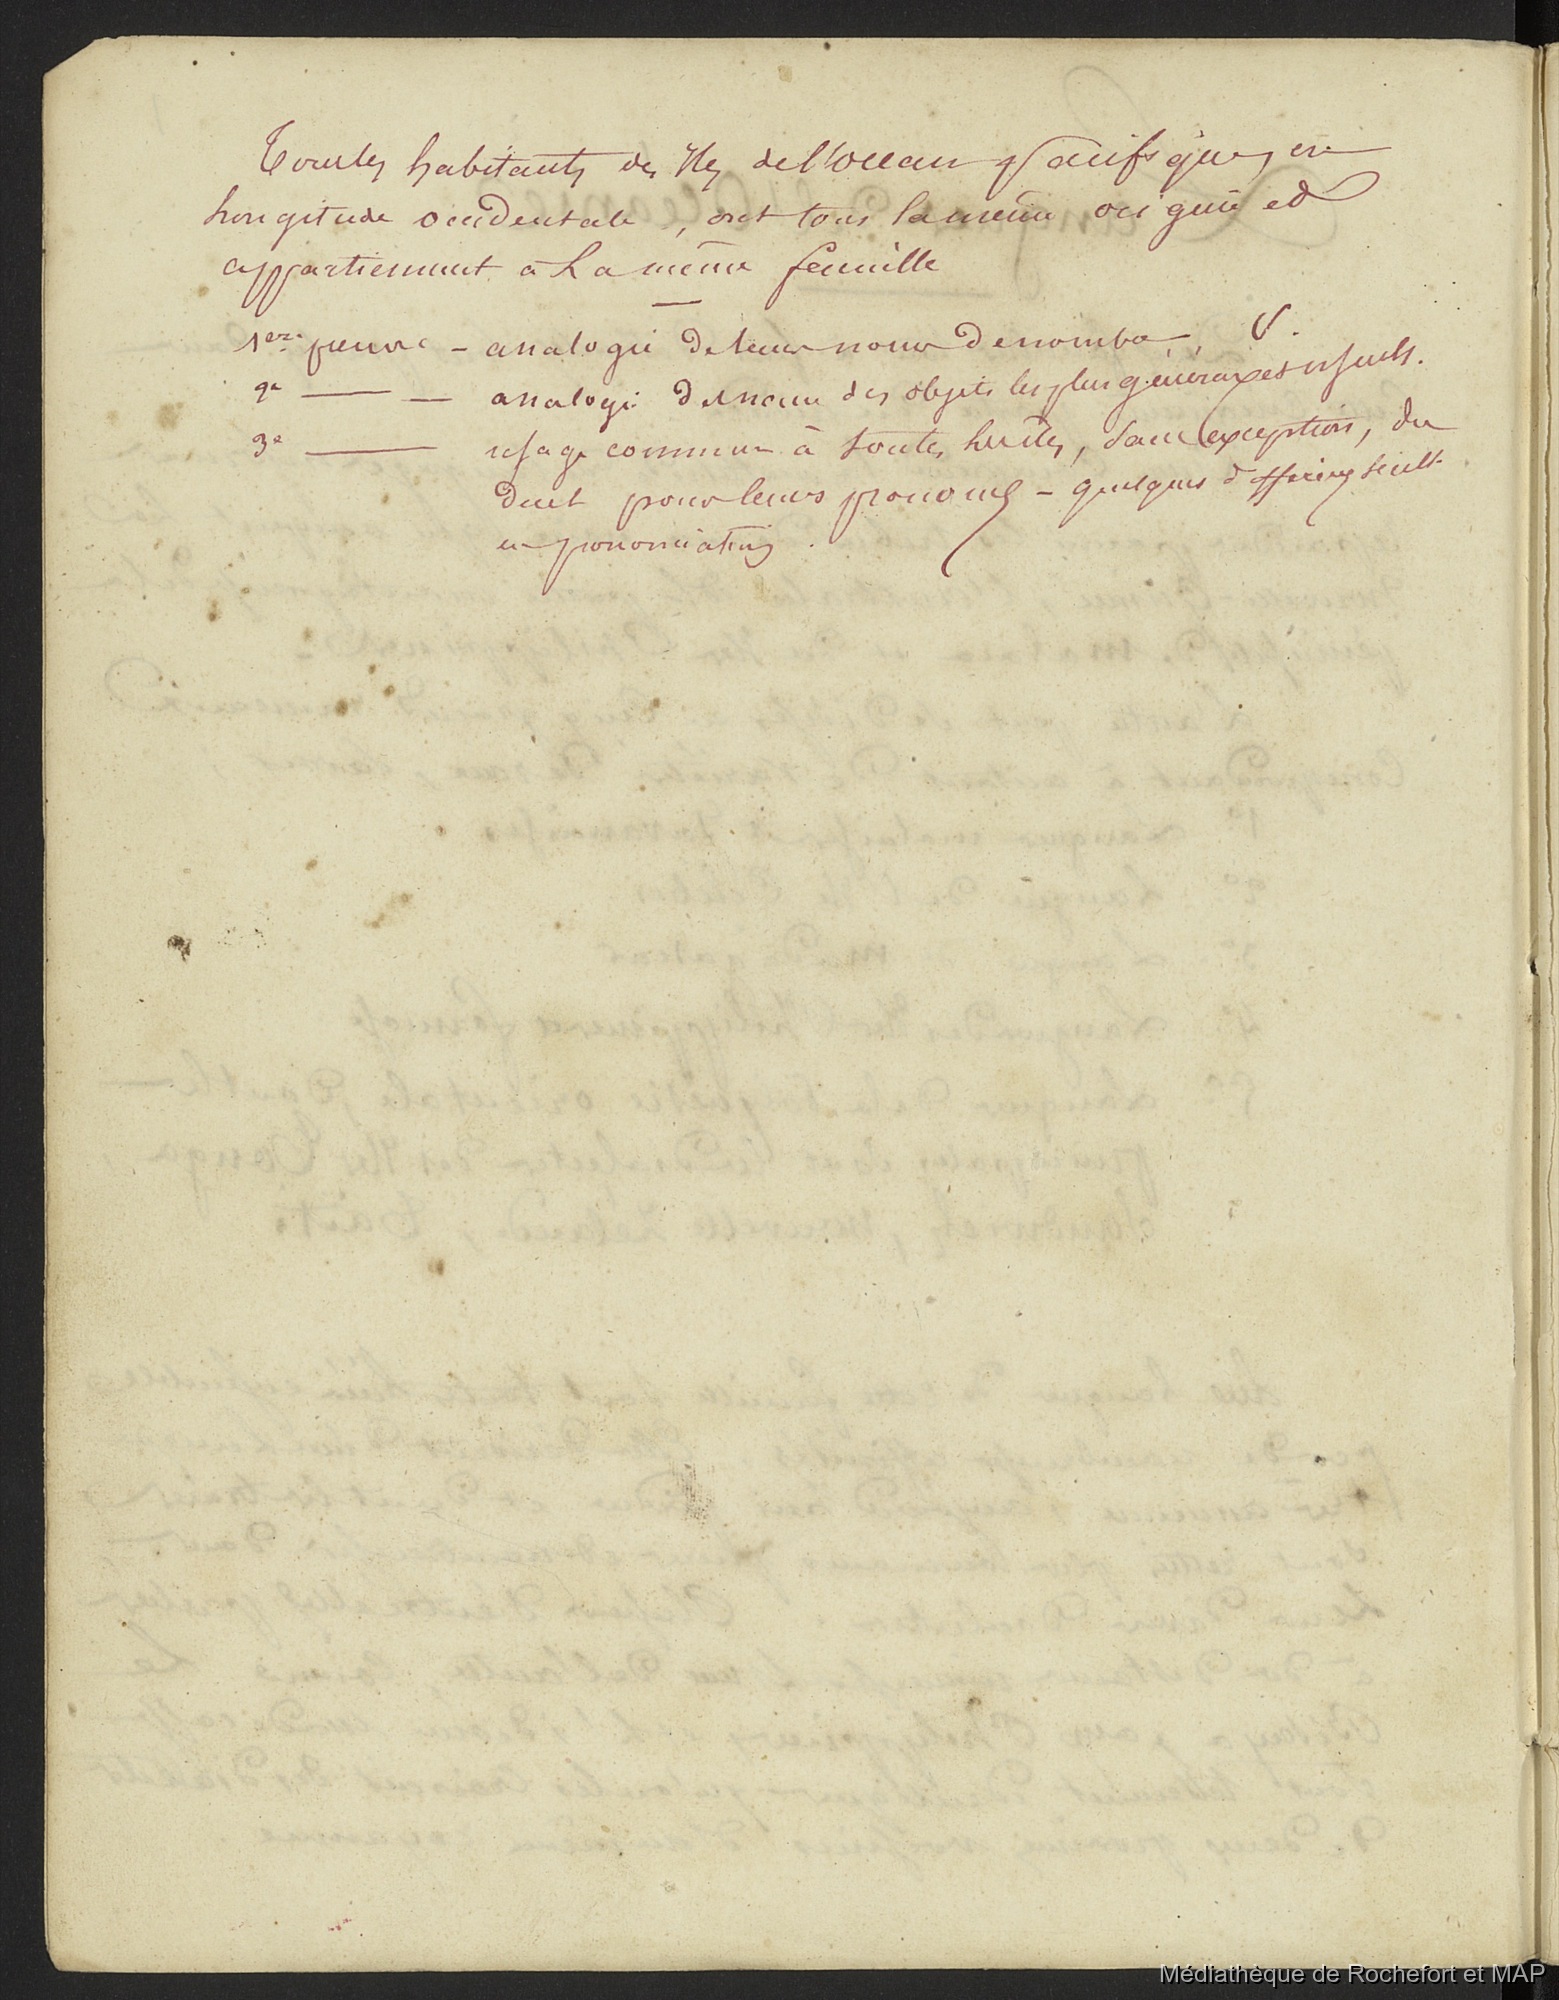 Tous les habitants des Iles de l'océan pacifique, en
longitude occidentale, ont tous la même origine et
appartiennent à la même famille
—
1ère preuve – analogie de leurs noms de nombre,
2e — — analogie des noms des objets les plus généraux et usuels.
3e — usage commun à toutes les îles, sans exception, du
duel pour leurs pronoms – quelques différences seult
en prononciation.
Médiathèque de Rochefort et MAP